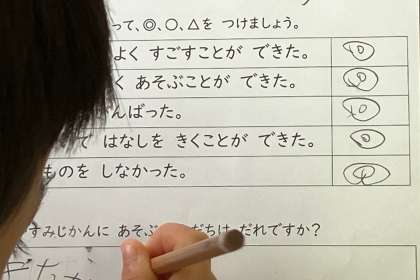 って、◎、○、△を つけましょう。
よく すごすことが できた。
く あそぶことが できた。
んばった。
て はなしを きくことが できた。
ものを しなかった。
すみじかんに あそぶ だちは だれですか？